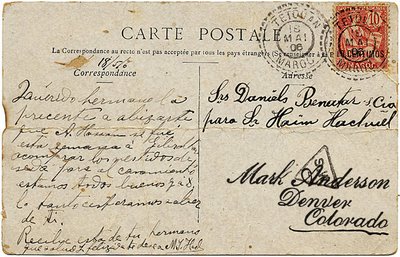 CARTE POSTALE
La Correspondance au recto n'est pas acceptée par tous les pays étrangers (Se renseigner à la
TETOUAN
MAI
06
MAROC
TETOUAN
MAI
06
MAROC
10
CENTIMES
Correspondance
Adresse
Querido hermano la
presente a abizarte
que A. Hassan se fue
esta semana a
a comprar los vestidos de
para el casamiento
estamos todos buenos
lo tanto esperamos saber
de ti.
Recibe esto de tu hermano
que saluda
Srs Daniels Benatar & Cia
para Sr Haim Hachuel
Mark Anderson
Denver
Colorado